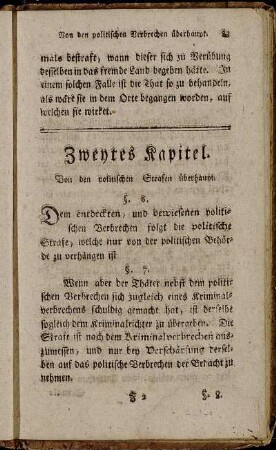 Von den politischen Verbrechen überhaupt.
mals bestraft, wann dieser sich zu Verübung
desselben in das fremde Land begeben hätte. In
einem solchen Falle ist die That so zu behandeln,
als wäre sie in dem Orte begangen worden, auf
welchen sie wirket.
Zweytes Kapitel.
Von den politischen Strafen überhaupt.
§. 6.
Dem entdeckten, und bewiesenen politi-
schen Verbrechen folgt die politische
Strafe, welche nur von der politischen Behör-
de zu verhängen ist
§. 7.
Wenn aber der Thäter nebst dem politi-
schen Verbrechen sich zugleich eines Kriminal-
verbrechens schuldig gemacht hat, ist derselbe
sogleich dem Kriminalrichter zu übergeben. Die
Strafe ist nach dem Kriminalverbrechen aus-
zumessen, und nur bey Verschärfung dersel-
ben auf das politische Verbrechen der Bedacht zu
nehmen.
F 2 §. 8.